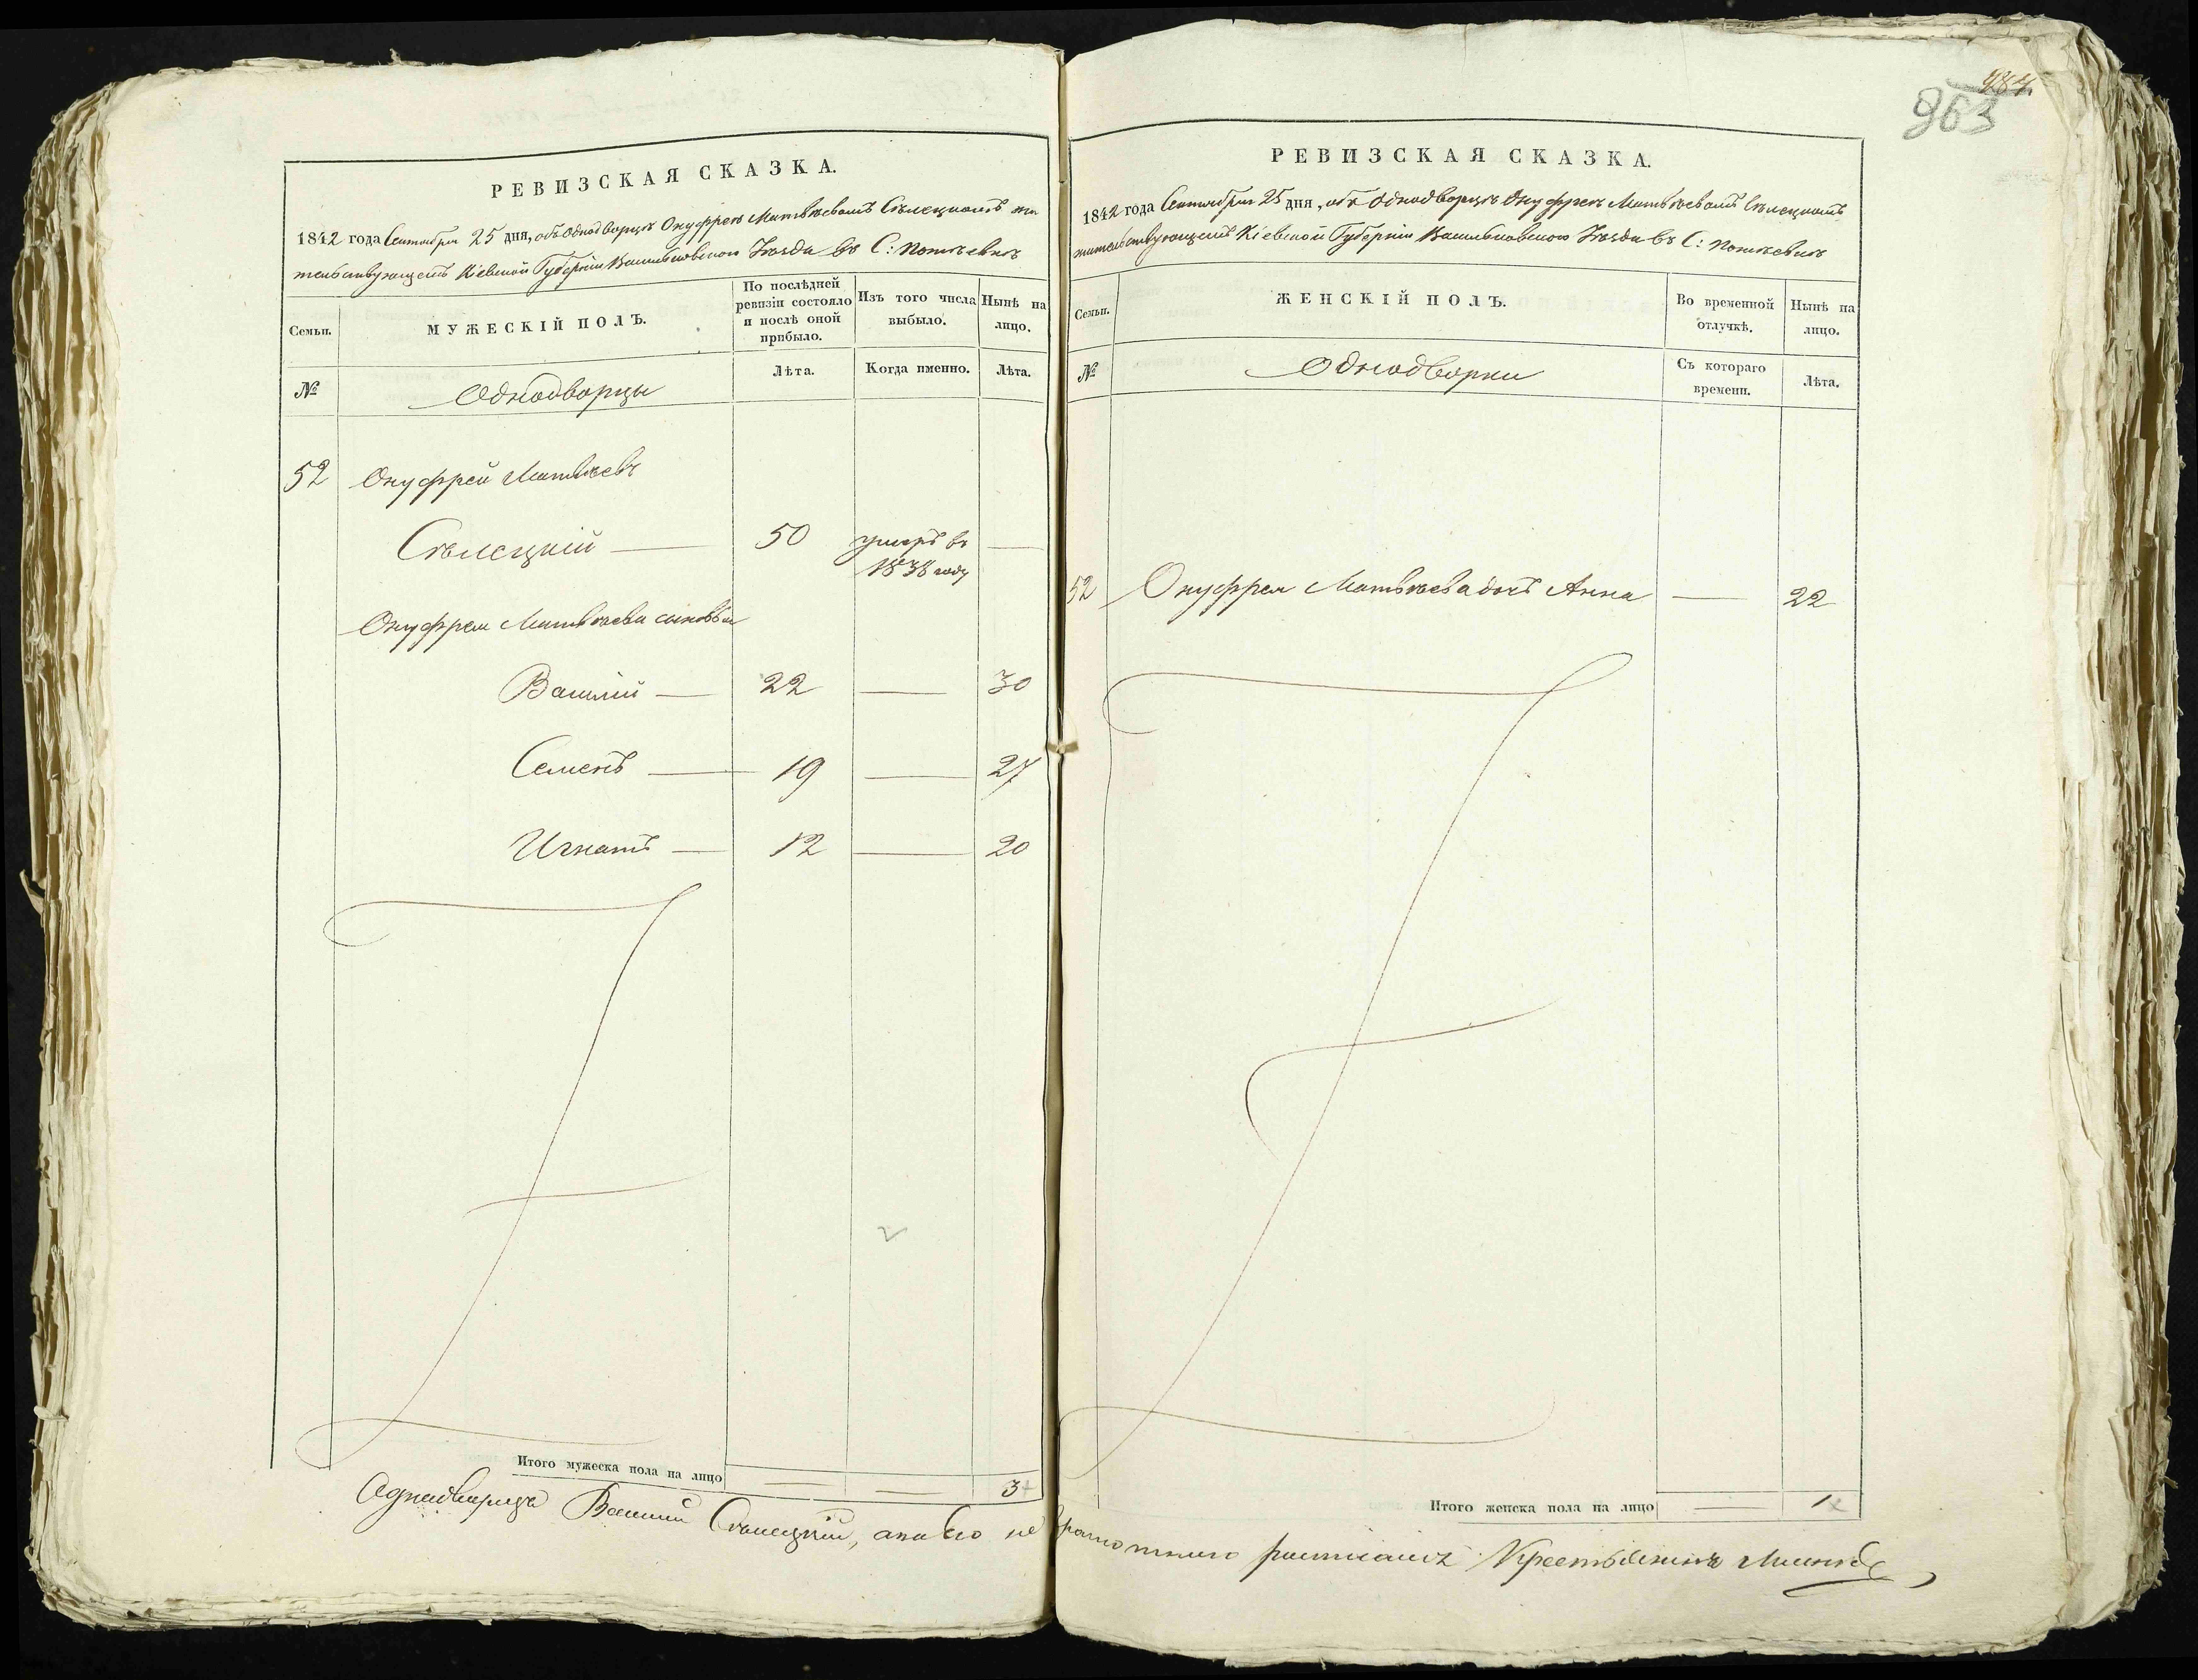 РЕВИЗСКАЯ СКАЗКА.
1842 года Сентября 25 дня, объ Однодворцѣ Онуфреѣ Матвѣевомъ Сѣлецкомъ жи
тельствующемъ Кіевской Губерніи Васильковскаго Уѣзда въ С: Потіевкѣ
Семьи.
МУЖЕСКІЙ ПОЛЪ.
По послѣдней
ревизіи состояло
и послѣ оной
прибыло.
Изъ того числа
выбыло.
Нынѣ на
лицо.
№
Однодворцы
Лѣта.
Когда именно.
Лѣта.
52 Онуфрей Матвѣевъ
Сѣлецкій — 50 умеръ въ —
1838 году
Онуфрея Матвѣева сыновья
Василій — 22 — 30
Семенъ — 19 — 27
Игнатъ — 12 — 20
Итого мужеска пола на лицо — — 3
963
РЕВИЗСКАЯ СКАЗКА.
1842 года Сентября 25 дня, объ Однодворцѣ Онуфреѣ Матвѣевомъ Сѣлецкомъ
жительствующемъ Кіевской Губерніи Васильковскаго Уѣзда въ С: Потіевкѣ
Семьи.
ЖЕНСКІЙ ПОЛЪ.
Во временной
отлучкѣ.
Нынѣ на
лицо.
№
Однодворки
Съ котораго
времени.
Лѣта.
52 Онуфрея Матвѣева дочь Анна — 22
Итого женска пола на лицо — 1
Аднадворца Василий Сѣлецкій, а по его не грамотного росписался Крестьянинъ